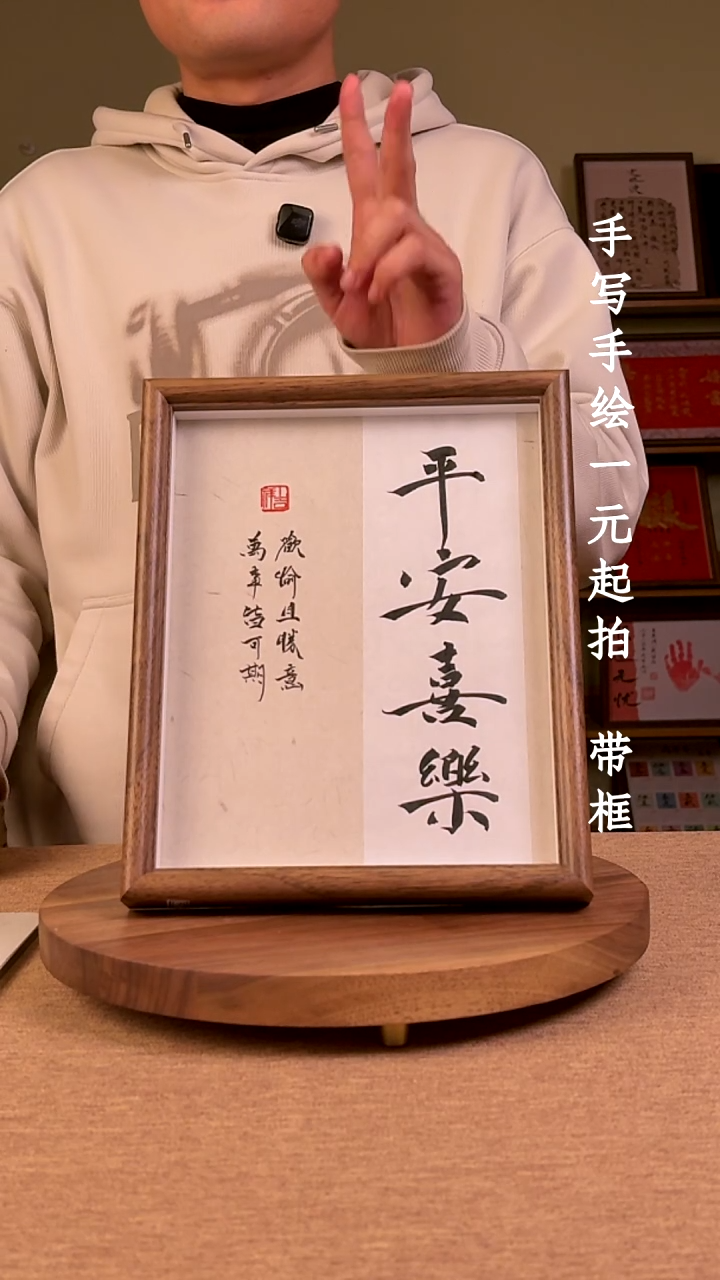 平安喜樂
歡愉且勝意
萬事皆可期
手写手绘一元起拍 带框